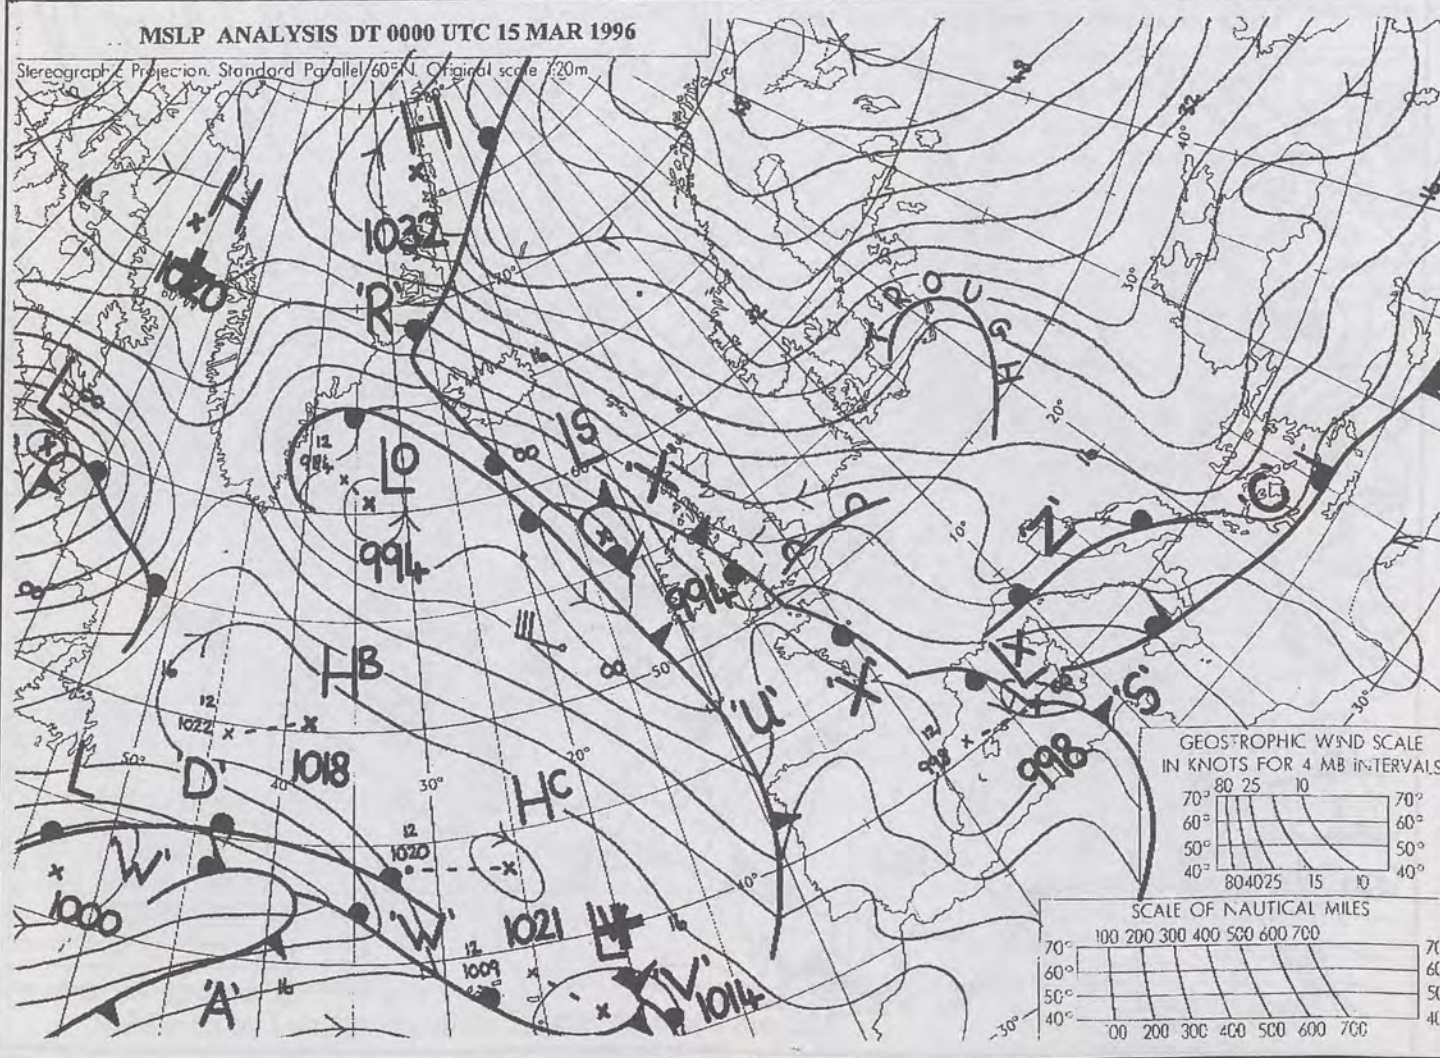 MSLP ANALYSIS DT 0000 UTC 15 MAR 1996
Stereographic Projection. Standard Parallel 60°N. Original scale 1:20m
H
H
1032
1020
'R'
TROUGH
48
32
40°
30°
20°
10°
70°
16
L
00
L
O
12
984
994
LS
00
X
994
N
'G'
16
X
'X'
'S'
12
998
998
'U'
50°
00
HB
12
1022
1018
50°
'D'
L
40°
30°
20°
HC
12
1020
1021
'W'
1000
'W'
'A'
16
12
1009
L
'V'
1014
40°
16
30°
30°
GEOSTROPHIC WIND SCALE
IN KNOTS FOR 4 MB INTERVALS
80 25 10
70° 70°
60° 60°
50° 50°
40° 40°
80 40 25 15 10
SCALE OF NAUTICAL MILES
100 200 300 400 500 600 700
70°
60°
50°
40°
100 200 300 400 500 600 700